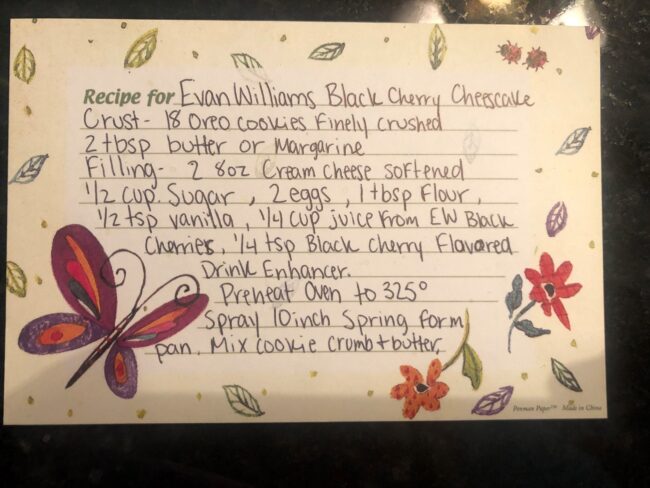 Recipe for Evan Williams Black Cherry Cheescake
Crust- 18 Oreo cookies Finely crushed
2 tbsp butter or Margarine
Filling- 2 8oz Cream cheese softened
1/2 cup. Sugar, 2 eggs, 1 tbsp Flour,
1/2 tsp vanilla, 1/4 cup juice From EW Black
Cherries, 1/4 tsp Black Cherry Flavored
Drink Enhancer.
Preheat Oven to 325°
Spray 10inch Spring form
pan. Mix cookie crumb + butter.
Penman Paper™ Made in China